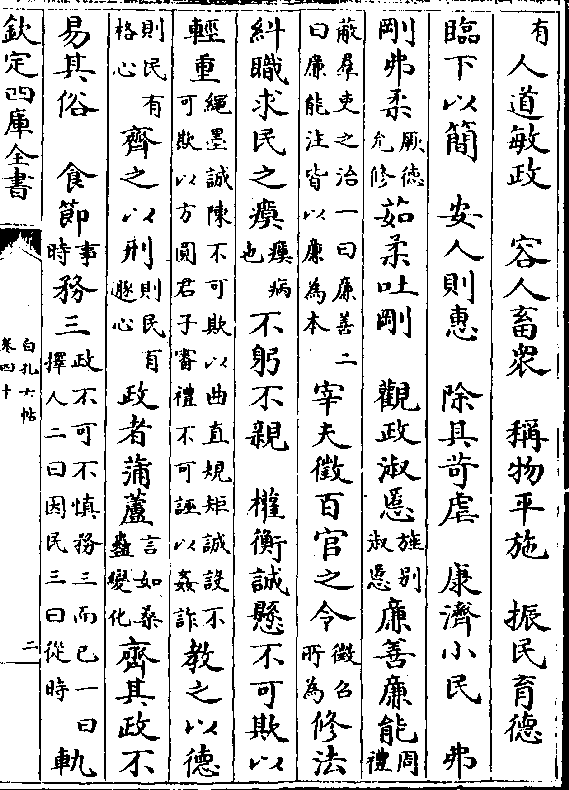 有人道敏政　容人畜衆　稱物平施　振民育德
臨下以簡　安人則惠　除其苛虐　康濟小民　弗
剛弗柔厥德允修茹柔吐剛　觀政淑慝旌别淑慝廉善廉能周禮
蔽羣吏之治一曰廉善二曰廉能注皆以廉為本宰夫徵百官之令徵召所為修法
糾職求民之瘼瘼病也不躬不親　權衡誠懸不可欺以
輕重繩墨誠陳不可欺以曲直規矩誠設不可欺以方圓君子審禮不可誣以姦詐教之以德
則民有格心齊之以刑則民有遯心政者蒲蘆言如桑蠱變化齊其政不
易其俗　食節事時務三政不可不慎務三而已一曰擇人二曰因民三曰從時軌
欽定四庫全書
白孔六帖
卷四十
二